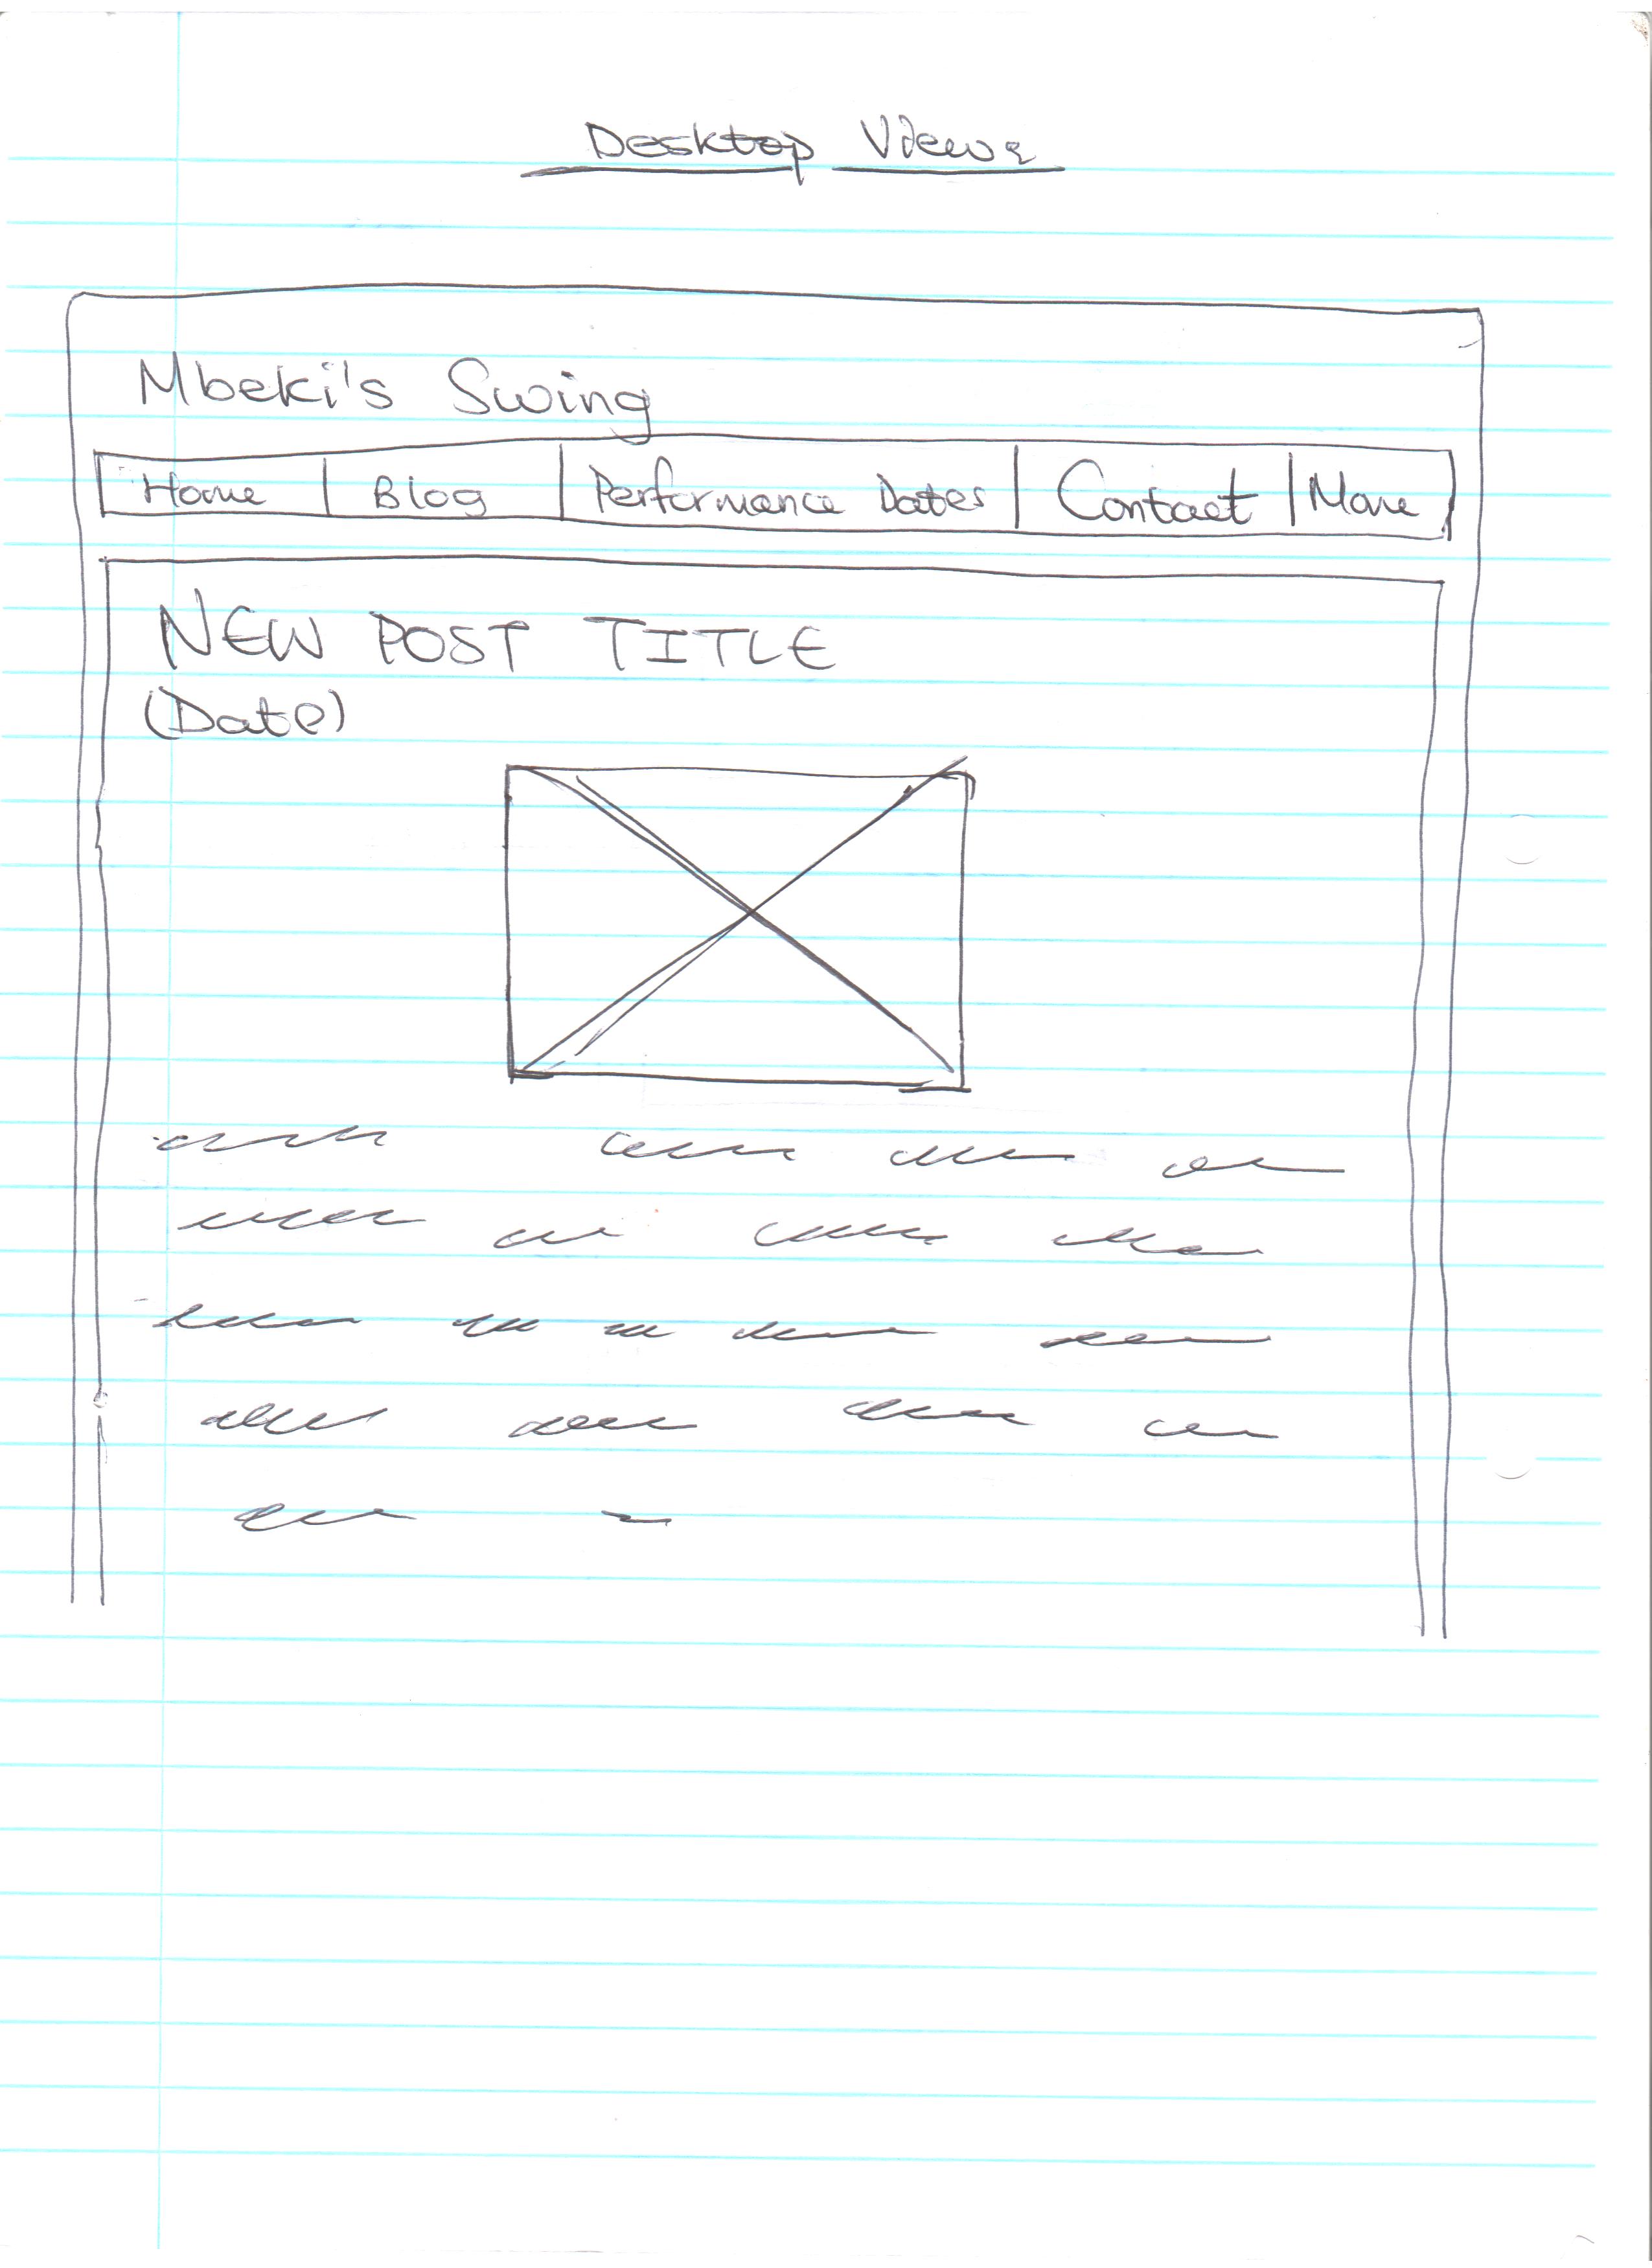 Desktop View
Mbeki's Swing
Home Blog Performance Dates Contact More
NEW POST TITLE
(Date)